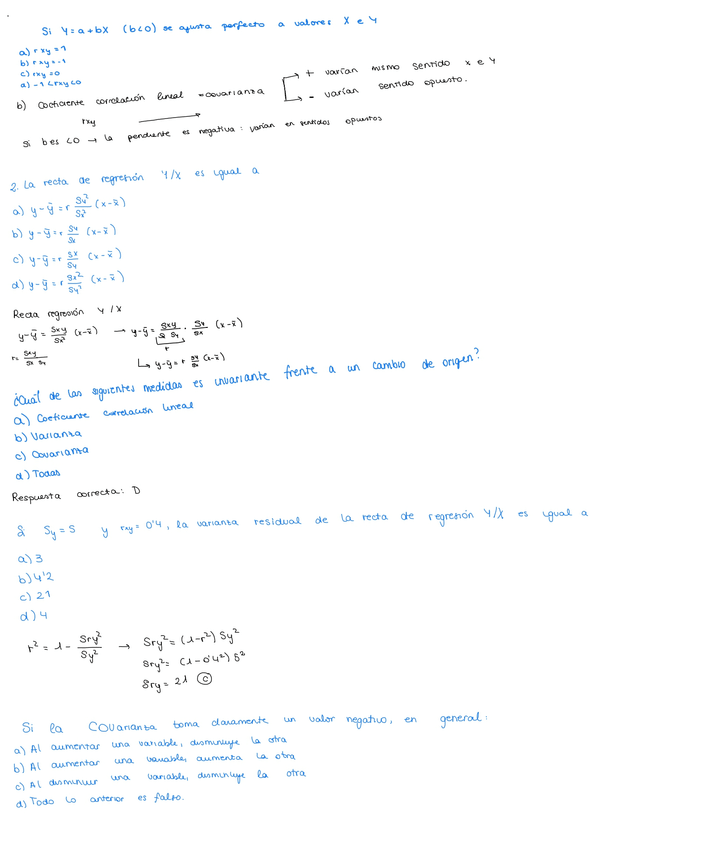 Si Y=a+bX (b<0) se ajusta perfecto a valores X e Y
a) rxy = 1
b) rxy = -1
c) rxy = 0
a) -1 < rxy < 0
b) Coeficiente correlación lineal = covarianza → + varían mismo sentido x e y
→ - varían sentido opuesto.
rxy
Si b es <0 → la pendiente es negativa: varían en sentidos opuestos
2. La recta de regresión Y/X es igual a
a) y-ȳ = r Sy²/Sx² (x-x̄)
b) y-ȳ = r Sy/Sx (x-x̄)
c) y-ȳ = r Sx/Sy (x-x̄)
d) y-ȳ = r Sx²/Sy² (x-x̄)
Recta regresión Y/X
y-ȳ = Sxy/Sx² (x-x̄) → y-ȳ = Sxy/Sx Sy · Sy/Sx (x-x̄)
r
r = Sxy/Sx Sy
↳ y-ȳ = r Sy/Sx (x-x̄)
¿Cuál de las siguientes medidas es invariante frente a un cambio de origen?
a) Coeficiente correlación lineal
b) Varianza
c) Covarianza
d) Todas
Respuesta correcta: D
Si Sy = 5 y rxy = 0'4, la varianza residual de la recta de regresión Y/X es igual a
a) 3
b) 4'2
c) 21
d) 4
r² = 1 - Sry²/Sy² → Sry² = (1-r²) Sy²
Sry² = (1-0'4²) 5²
Sry = 21 ⓒ
Si la covarianza toma claramente un valor negativo, en general:
a) Al aumentar una variable, disminuye la otra
b) Al aumentar una variable, aumenta la otra
c) Al disminuir una variable, disminuye la otra
d) Todo lo anterior es falso.